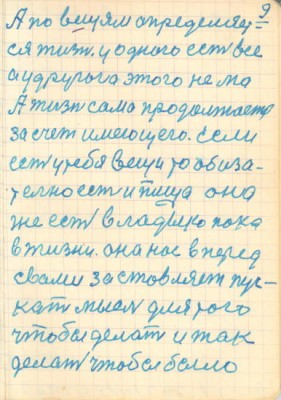 9
А по вещям определяет-
ся жизн. у одного ест все
а у другога этого не ма
А жизн сама продолжается
за счет имеющего. Если
ест у тебя вещи то обиза-
телно ест и пища она
же ест владыко пока
в жизни. она нас вперед
с вами заставляет пус-
кат мысл для того
чтобы делат и так
делат чтобы было